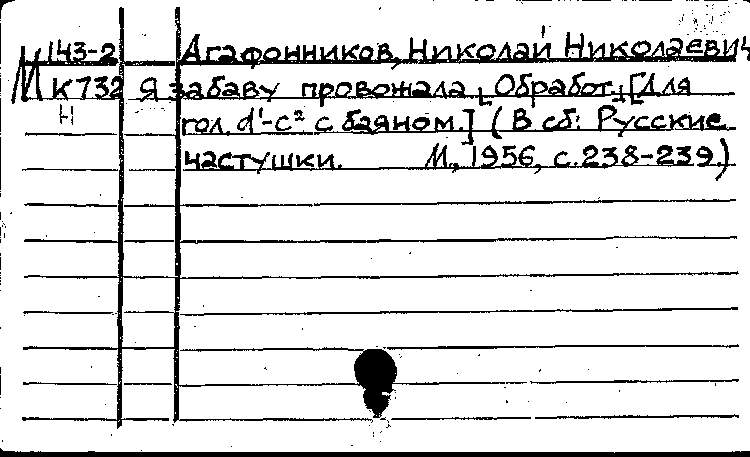 М 143-2 Агафонников, Николай Николаевич
К732 Я забаву провожала. Обработ. [Для
Н гол. d¹-c² с баяном.] (В сб: Русские
частушки. М., 1956, с.238-239.)